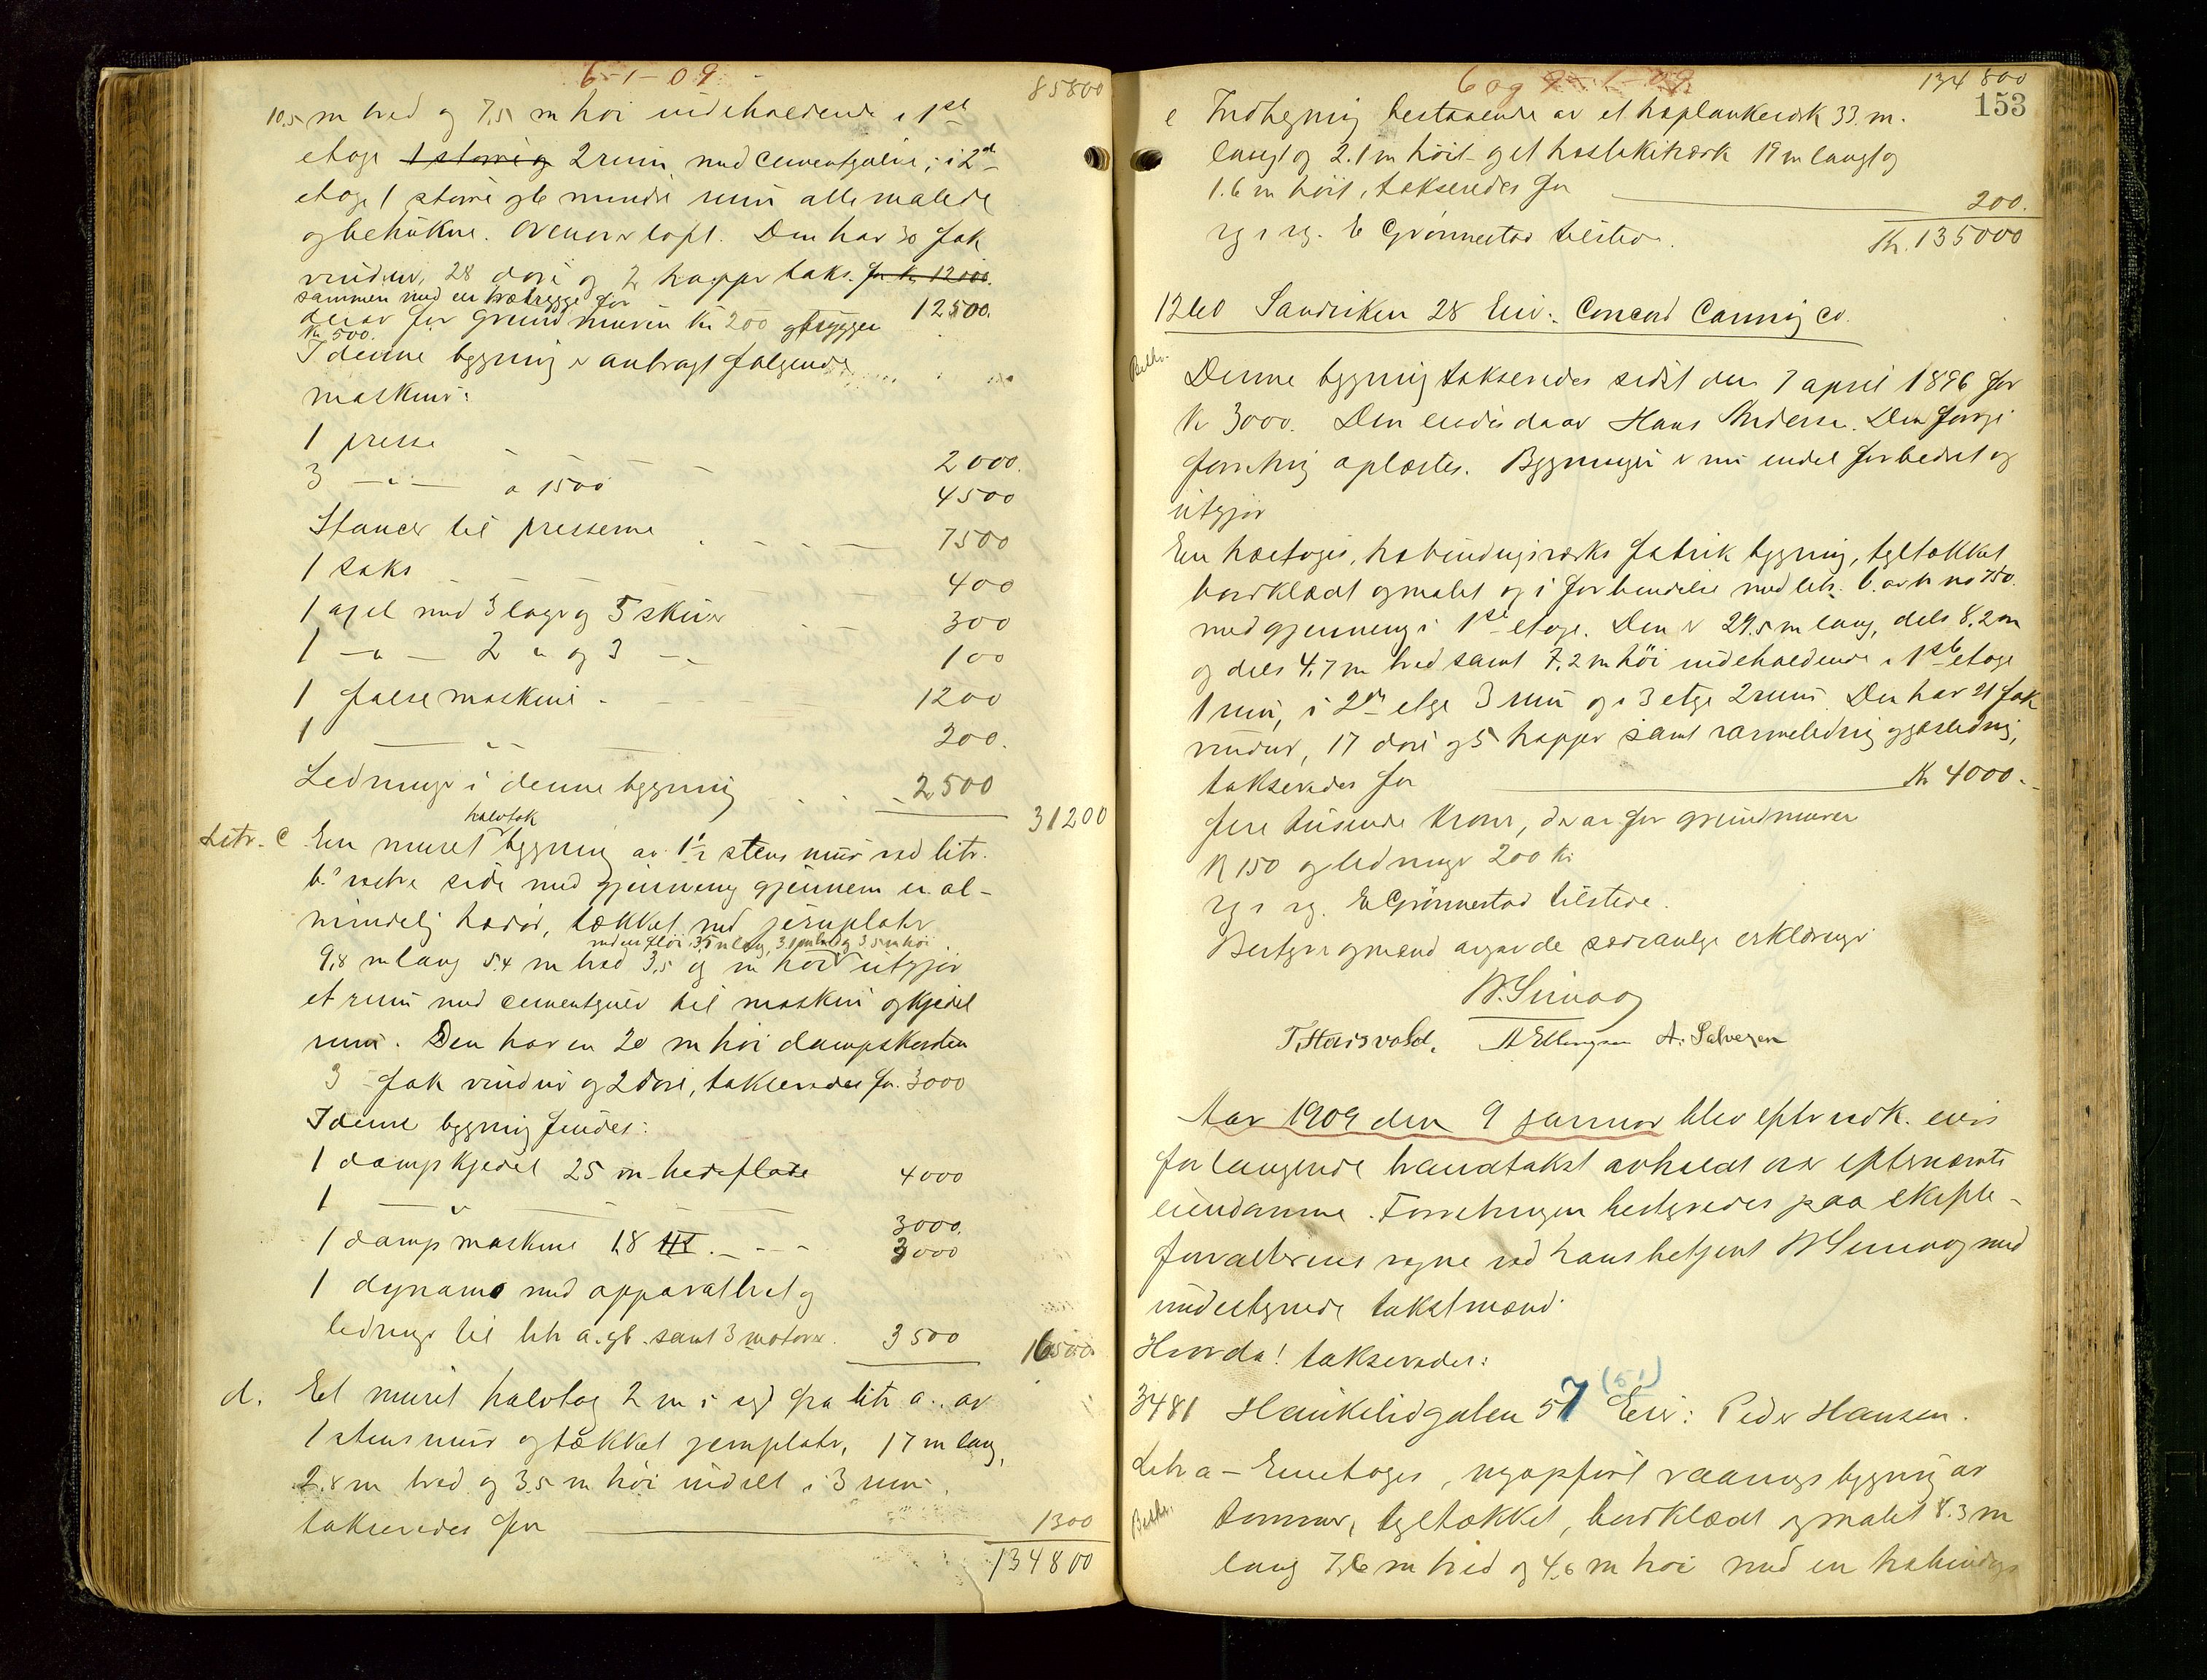 6-1-09
85800
10,5 m bred og 7,5 m høi indeholdende i 1ste
etage 1 større og 2 rum med cementgulve; i 2d
etage 1 større og 6 mindre rum alle malede
og beträkne. Ovenover loft. Den har 30 fak
vinduer, 28 döre og 2 trapper taks. for Kr 12000.
sammen med en træbrygge for 12500.
derav for grundmuren Kr 200 og bryggen
Kr 500.
I denne bygning er anbragt følgende
maskiner:
1 presse 2000.
3 -"- a 1500 4500
Stancer til presserne 7500
1 saks 400
1 axel med 3 lager og 5 skiver 300
1 -"- 2 " og 3 -"- 100
1 false maskine 1200
1 -"- 200.
Ledninger i denne bygning 2500
31200
Litr. c En muret halvtak bygning av 1½ stens mur ved litr.
b.s vestre side med gjennemg gjennem en al-
mindelig trædør, tækket med jernplater
med en fløi 3,5 m lang, 3,1 m bred og 3,5 m høi
9,8 m lang 5,4 m bred 3,5 og m høi utgjør
et rum med cementgulv til maskin og kjedel
rum. Den har en 20 m høi dampskorsten
3 fak vinduer og 2 döre, takseredes for 3000
I denne bygning findes:
1 dampkjedel 25 m hedeflate 4000
1 -"- 3000.
1 dampmaskine 18 HK. 3000
1 dynamo med apparattavl og
ledninger til litr a. og b. samt 3 motorer. 3500
16500
d. Et muret halvtag 2 m i syd fra litr a. av
1 stens mur og tækket jernplater, 17 m lang,
2.8 m bred og 3.5 m høi inddelt i 3 rum
takseredes for 1300
134800
6 og 9-1-09
134800
153
e Indhegning bestaaende av et træplankeværk 33. m.
langt og 2.1 m høit og et træstakitværk 19 m langt og
1.6 m høit, takseredes for 200.
rg. E Grønnestad tilstede. Kr. 135000
1260 Sandviken 28 Eier: Concord Canning Co.
Beskr.
Denne bygning takseredes sidst den 7 april 1896 for
Kr 3000. Den eiedes da av Hans Andersen. Den forrige
forretning oplæstes. Bygningen er nu endel forbedret og
utgjør
En træetages, træbindingsværks fabrik bygning, tegltækket
bordklædt og malet og i forbindelse med litr. b. av br no 750.
med gjennemg i 1ste etage. Den er 29.5 m lang, dels 8,2 m
og dels 4,7 m bred samt 7.2 m høi indeholdende i 1ste etage
1 rum, i 2den etge 3 rum og i 3 etge 2 rum. Den har 21 fak
vinduer, 17 döre og 5 trapper samt varmeledning og gasledning,
takseredes for Kr 4000.-
fire tusinde kroner, derav for grundmuren
Kr 150 og ledninger 200 Kr
rg. E Grønnestad tilstede.
Bestyrer og mænd avgav de sedvanlige erklæringer
T. Hausvold. A Ellingsen A. Salvesen
Aar 1909 den 9 januar blev efter vedk. eiers
forlangende brandtakst avholdt over efternævnte
eiendomme. Forretningen bestyredes paa skifte-
forvalterens vegne ved hans betjent og med
undertegnede takstmænd.
Hvorda! takseredes:
3481 Haukelidgaten 57 (51) Eier: Peder Hansen.
Litr a - Enetages, nyopført vaanings bygning av
Beskr.
tømmer, tegltækket, bordklædt og malet 8.3 m
lang 7,6 m bred og 4,6 m høi med en træbindings